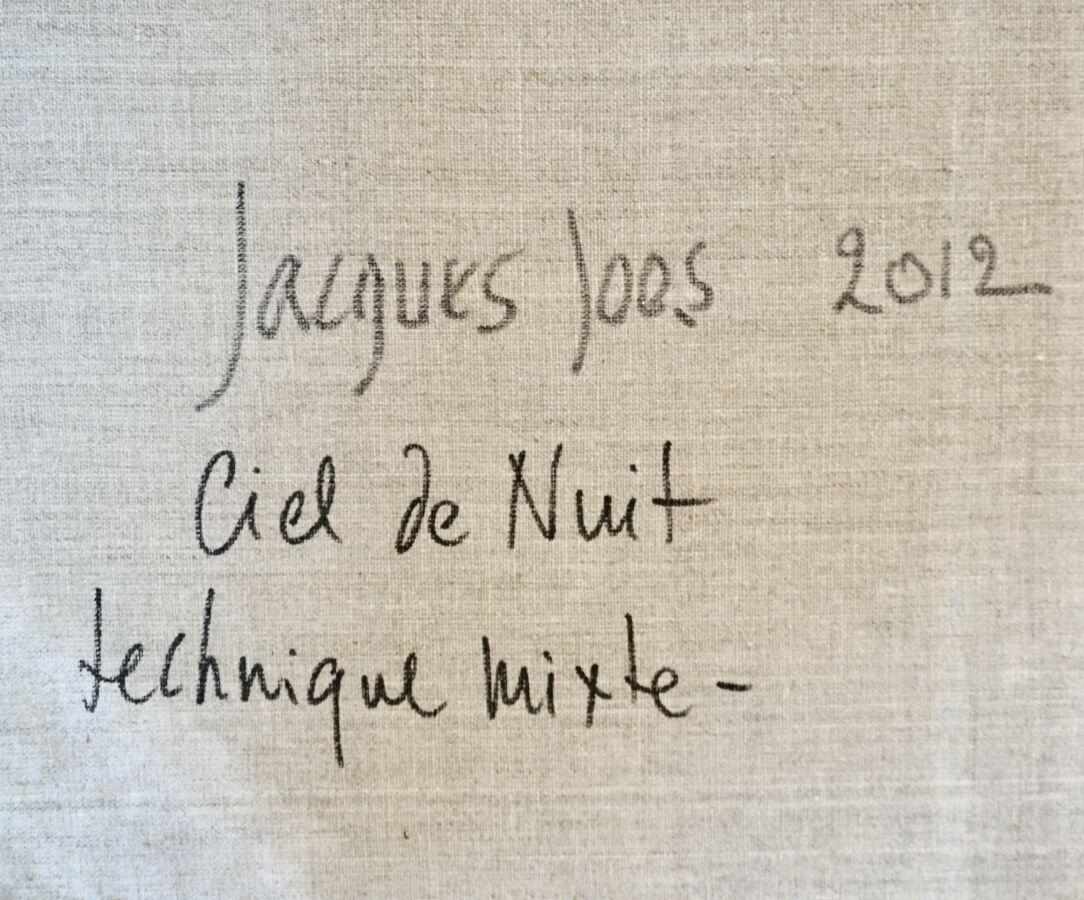 Jacques Joos 2012
Ciel de Nuit
technique mixte -